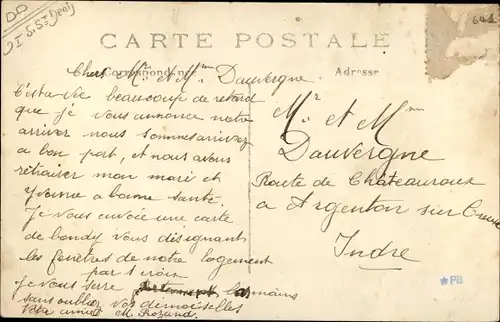 DD
D I S. St Denis
641
CARTE POSTALE
Correspondance
Adresse
Chers Mr et Mm Dauvergne
C'est avec beaucoup de retard
que je vous annonce notre
arriver nous sommes arrivez
a bon port, et nous avons
retrouver mon mari et
Yvonne a bonne santé.
Je vous envoie une carte
de bondy vous désignant
les fenêtres de notre logement
par 1 croix
Je vous serre les mains
sans oublier vos demoiselles
Votre amie M.
Mr et Mm
Dauvergne
Route de Châteauroux
a Argenton sur Creuse
Indre
PB